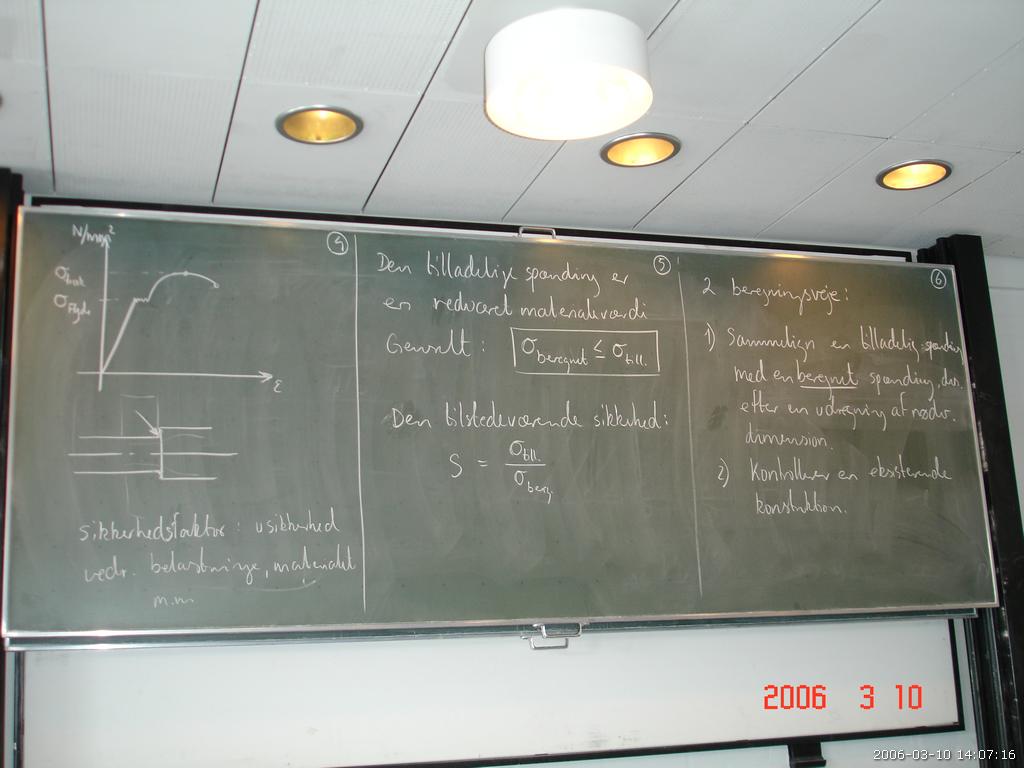 N/mm²
4
σbrud
σFlyde
ε
sikkerhedsfaktor : usikkerhed
vedr. belastninge, materialet
m.m.
5
Den tilladelige spænding er
en reduceret materialeværdi
Generelt : σberegnet ≤ σtill.
Den tilstedeværende sikkerhed :
S = σtill. / σbereg.
6
2 beregningsveje :
1) Sammenlign en tilladelig spænding
med en beregnet spænding, dvs.
efter en udregning af nødv.
dimension.
2) Kontrollerer en eksisterende
konstruktion.
2006 3 10
2006-03-10 14:07:16